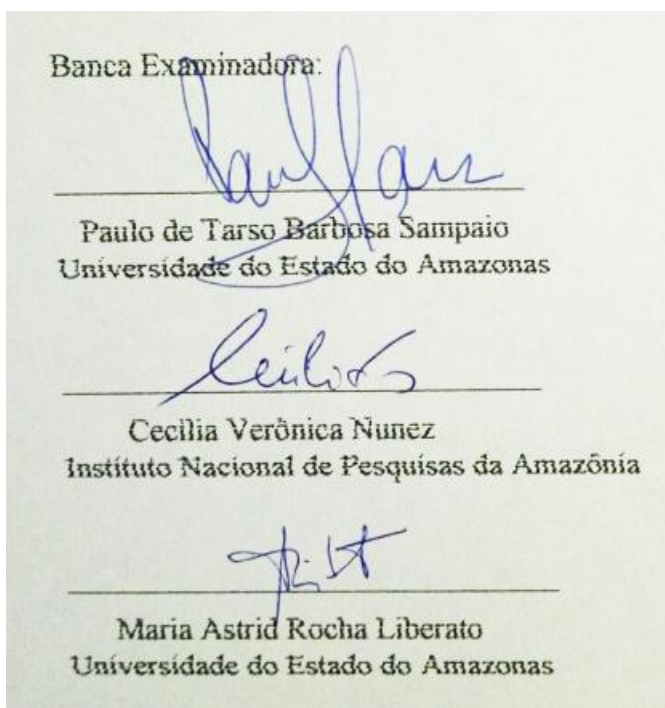 Banca Examinadora:
Paulo de Tarso Barbosa Sampaio
Universidade do Estado do Amazonas
Cecilia Verônica Nunez
Instituto Nacional de Pesquisas da Amazônia
Maria Astrid Rocha Liberato
Universidade do Estado do Amazonas